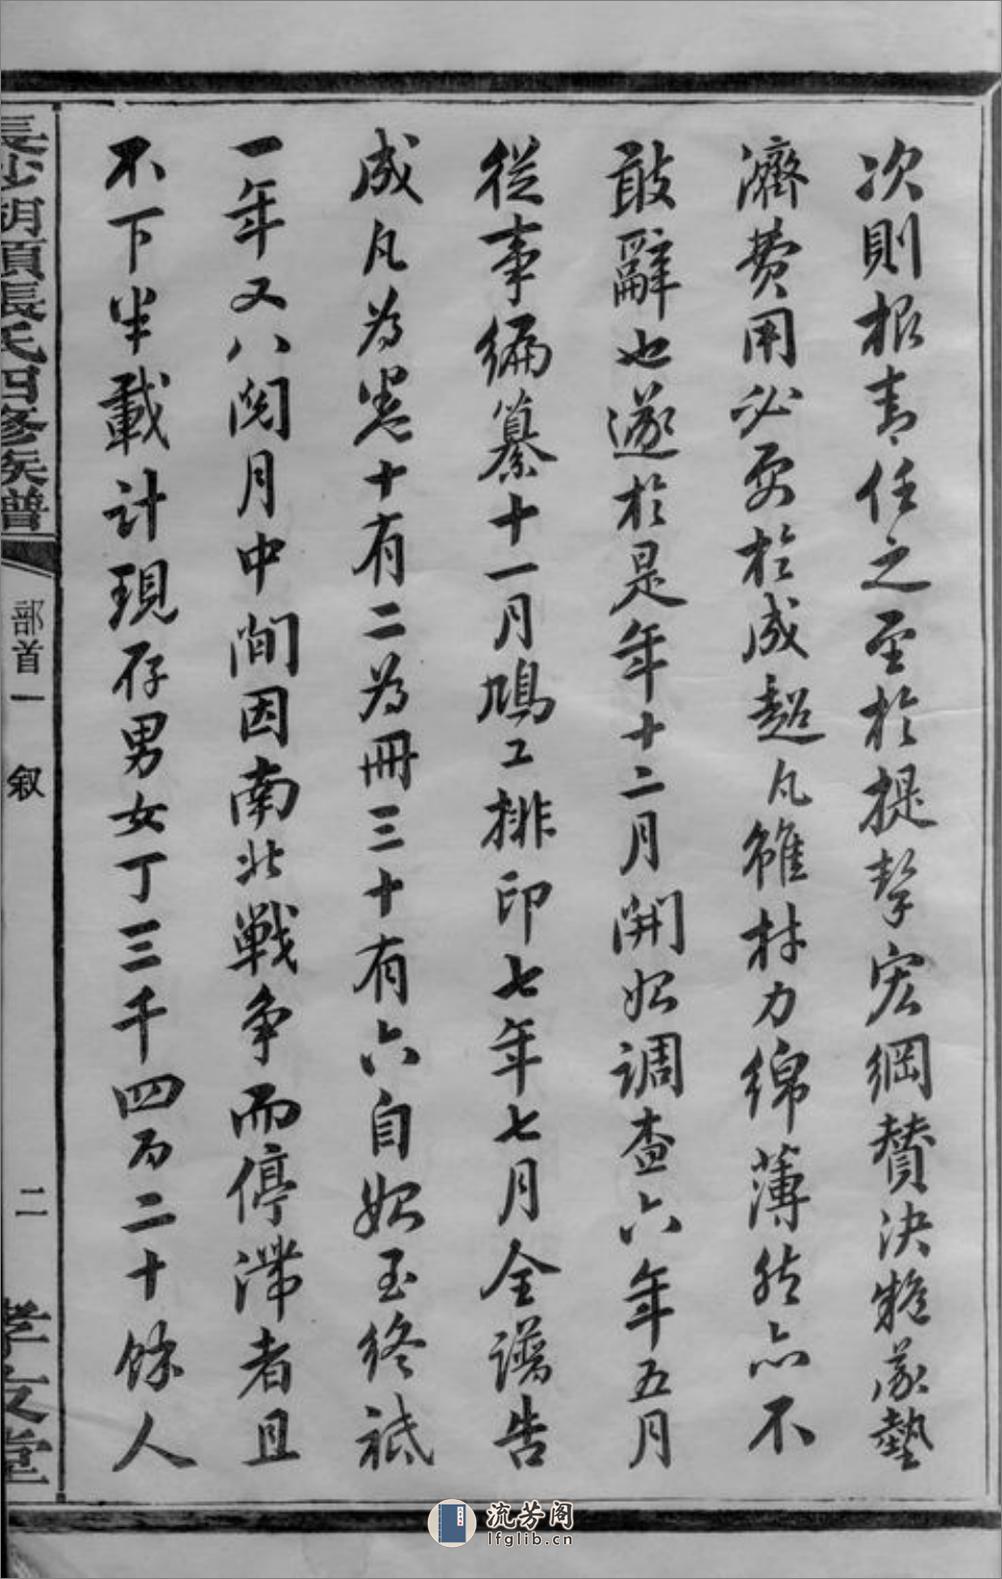 次則根青任之至於提挈宏綱贊決疑義藝
濟費用必要於成超凡雖材力綿薄然亦不
敢辭也遂於是年十二月開始調查六年五月
從事編纂十一月鳩工排印七年七月全譜告
成凡為卷十有二為冊三十有六自始至終祇
一年又八閱月中間因南北戰爭而停滯者且
不下半載計現存男女丁三千四百二十餘人
長沙湖頭張氏四修族譜
部首一
叙
二
孝友堂
流芳阁
lfglib.cn